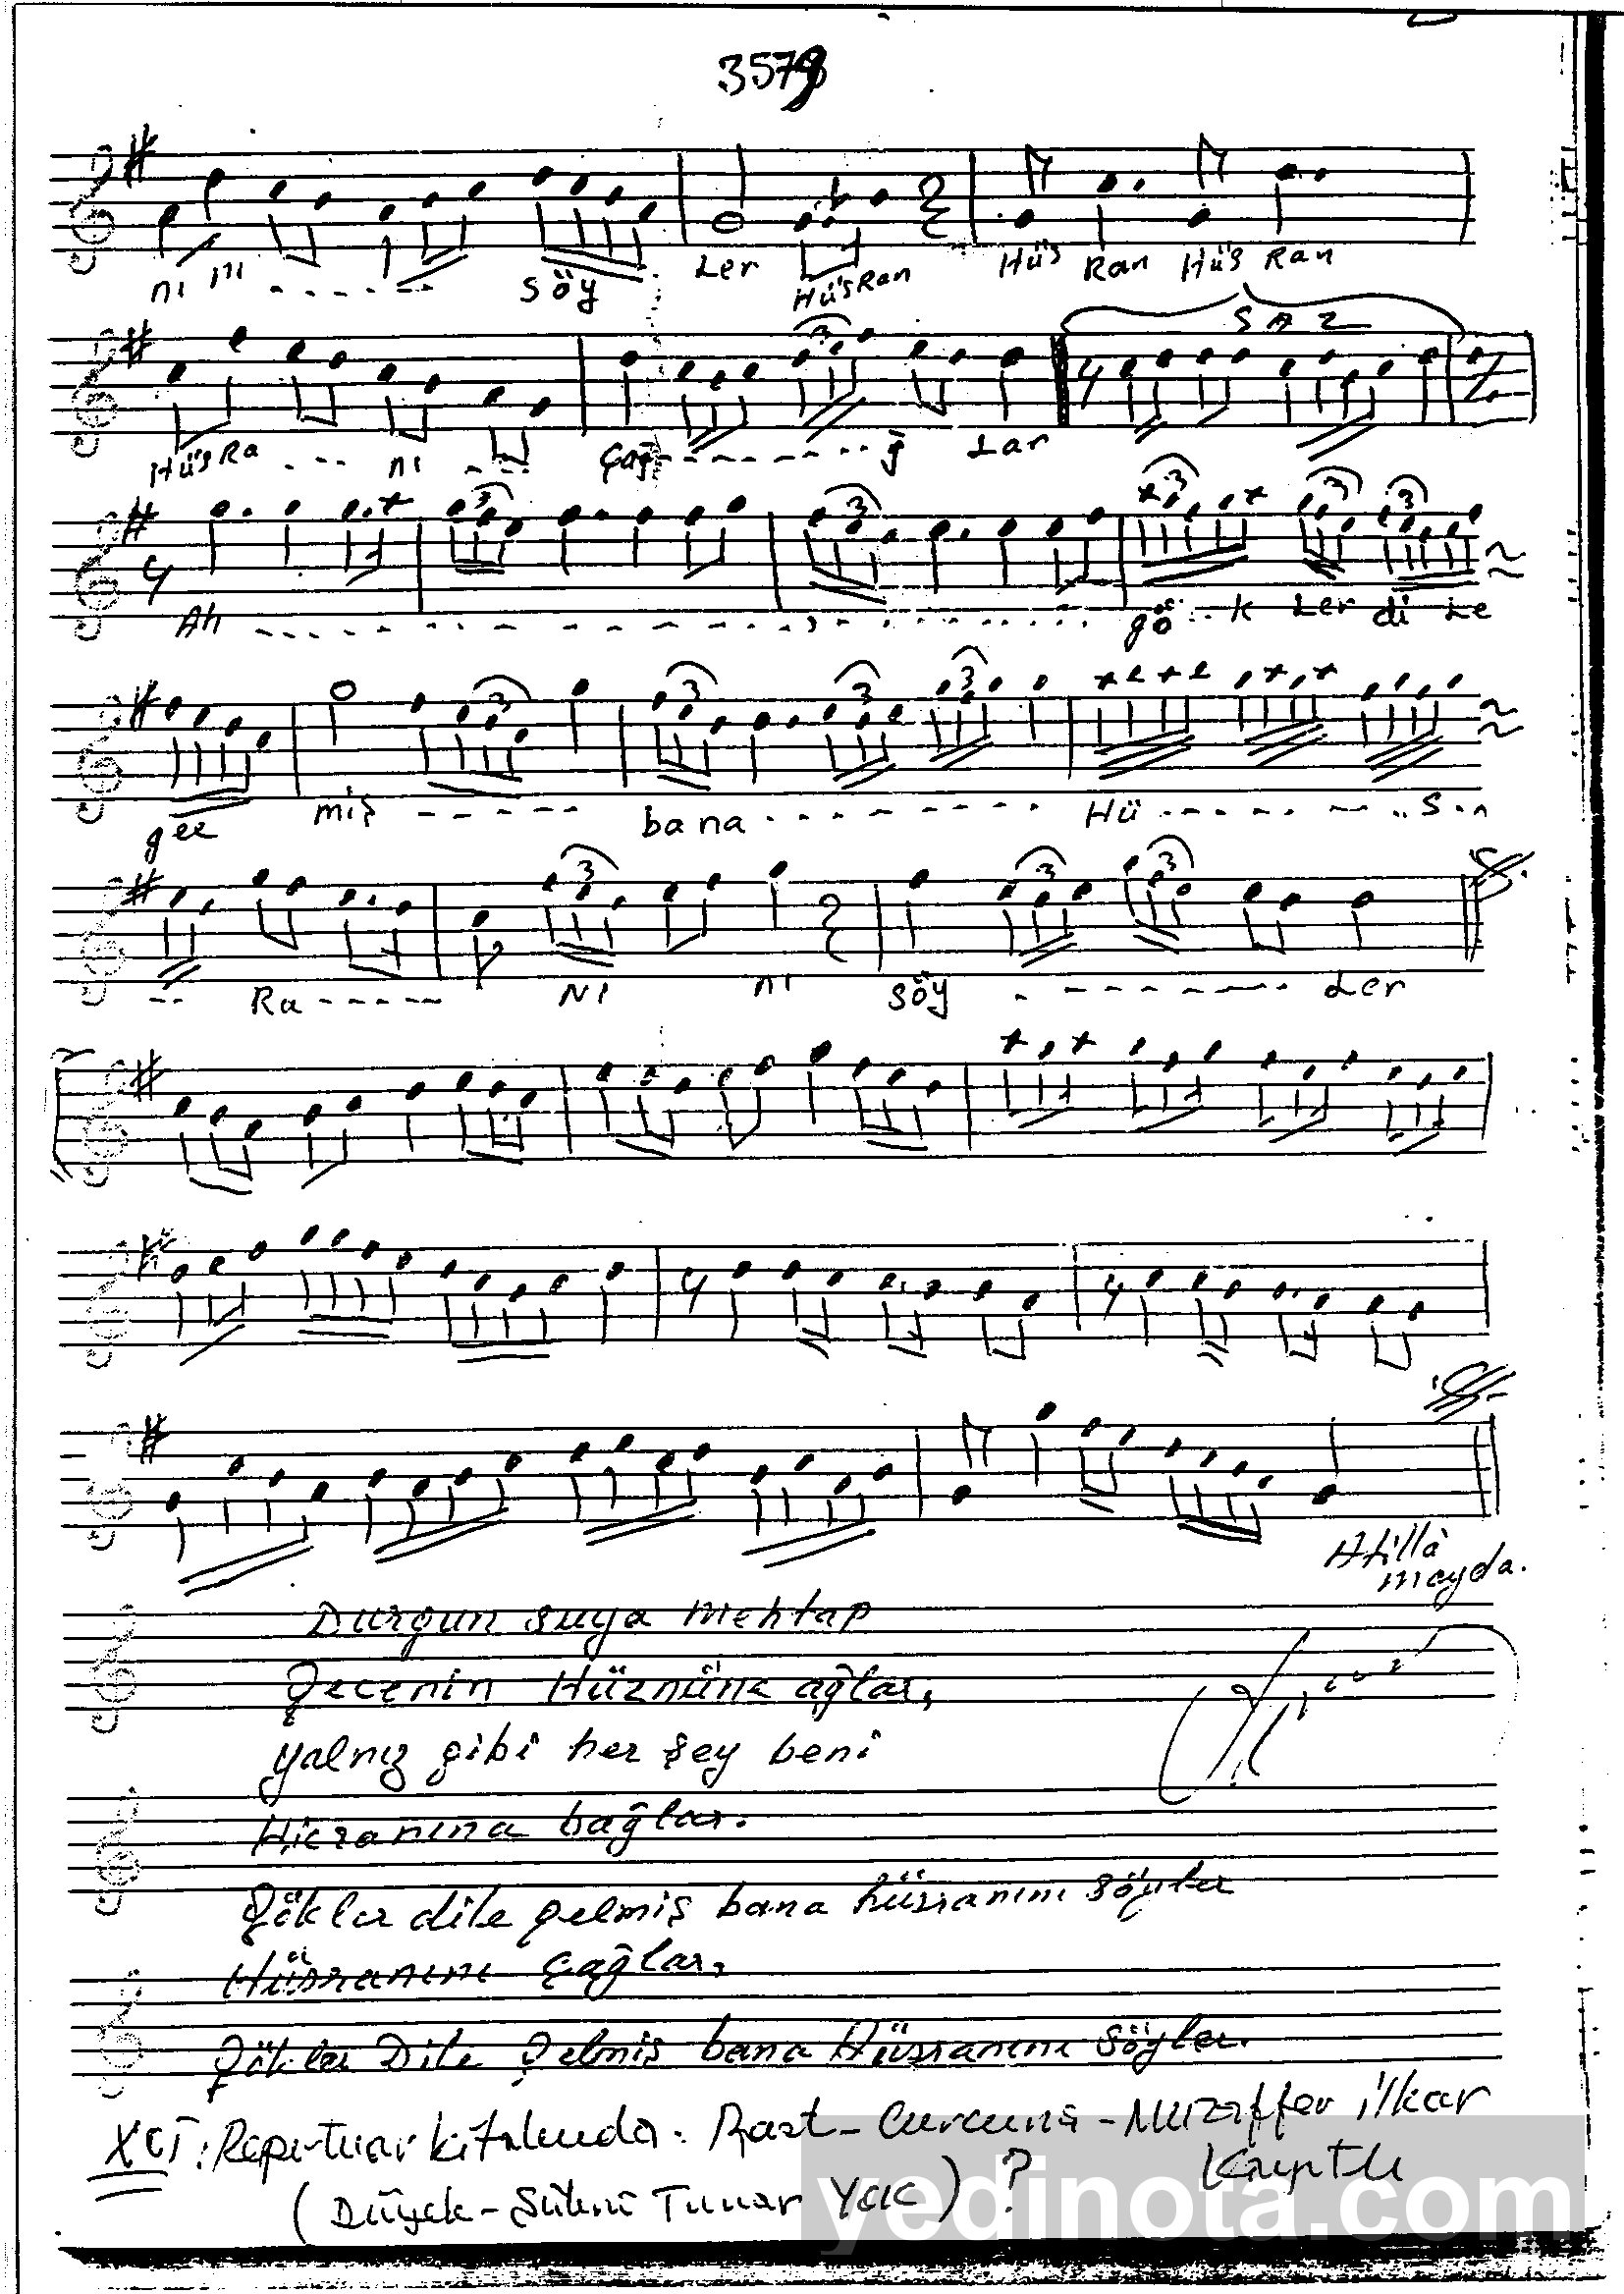 3579
ni ni - - - - - - söy Ler HüsRan Hüs Ran Hüs Ran
SAZ
HüsRa - - - ni - - - Çağ - - - - - - - - ğ Lar
Ah - - - - - - - - - - - - - - - - gö - - k Ler di Le
gee miş - - - - - - bana - - - - - - - - Hü - - - - - - - S - n
- - Ra - - - - - Ni ni söy - - - - - - - Ler
3 3 3 3 3
Atilla
mayda.
Durgun suya mehtap
Gecenin Hüznüne ağlar,
yalnız gibi her şey beni
Hicranına bağlar.
Gökler dile gelmiş bana hüsranını söyler
Hüsranını çağlar,
Gökler Dile Gelmiş bana Hüsranını söyler.
Repertuar kitabında. Rast - Curcuna - Muzaffer ilkar
Kayıtlı
(Düyek - Tunar Yok) ?
yedinota.com